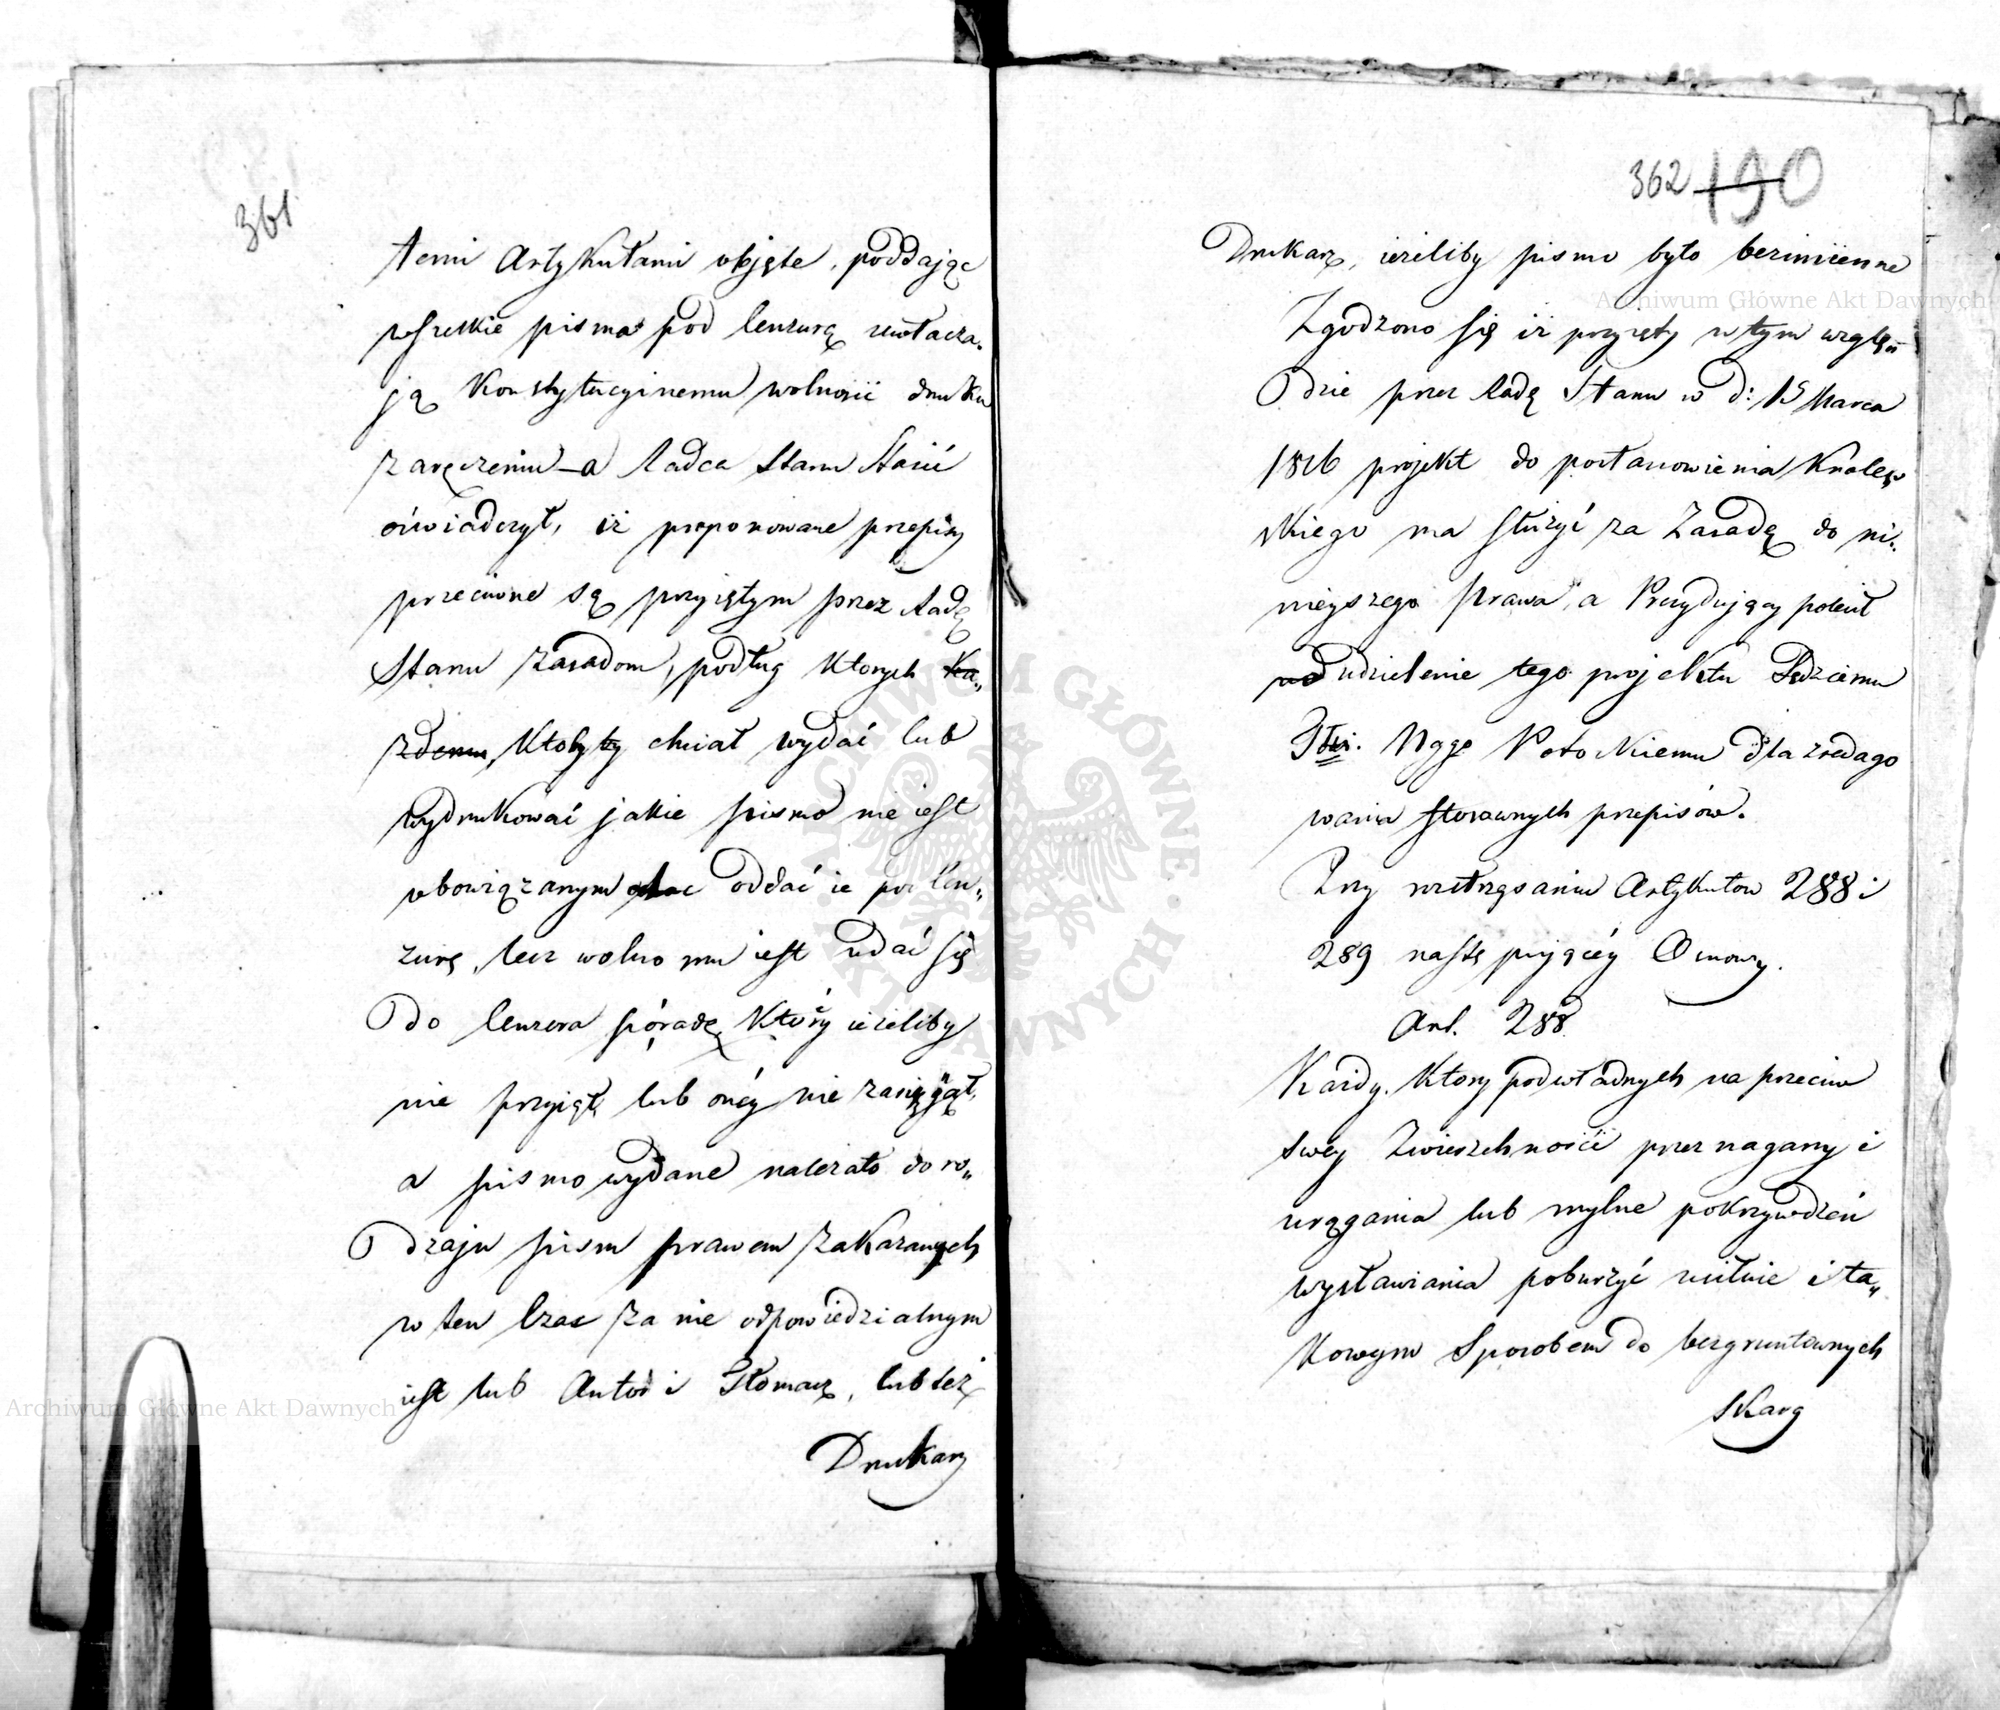 361
temi Artykułami objęte, poddając
wszelkie pisma pod Cenzurę uwłacza-
ją Konstytucyinemu wolności druku
zaręczeniu – a Radca Stanu Stasic
oświadczył, iż proponowane przepisy
przeciwne są przyiętym przez Radę
Stanu zasadom, podług których ka-
żdemu, Ktoby chciał wydać lub
wydrukować jakie pismo nie iest
obowiązanym oddać ie pod Cen-
zurę, lecz wolno mu iest udać się
do Cenzora po radę, Który ieżeliby
nie przyiął, lub oney nie zasięgął,
a pismo wydane należało do ro-
dzaju pism prawem zakazanych
w ten czas za nie odpowiedzialnym
iest lub Autor i Tłomacz, lub też
Drukarz
362 190
Drukarz, ieżeliby pismo było bezimienne
Zgodzono się iż przyięty w tym wzglę-
dzie przez Radę Stanu w d: 15 Marca
1816 projekt do postanowienia Królew-
skiego ma służyć za Zasadę do ni-
nieyszego prawa, a Prezydujący polecił
udzielenie tego projektu Sędziemu
Potockiemu dla zredago
wania stosownych przepisów.
Przy roztrząsaniu Artykułów 288 i
289 następującéy Osnowy.
Art. 288
Każdy, Który podwładnych na przeciw
swey Zwierzchności przez nagany i
urągania lub mylne pokrzywdzeń
wystawiania poburzyć usiłuie i ta-
Kowym Sposobem do bezgruntownych
Skarg
Archiwum Główne Akt Dawnych
Archiwum Główne Akt Dawnych
ARCHIWUM GŁÓWNE AKT DAWNYCH